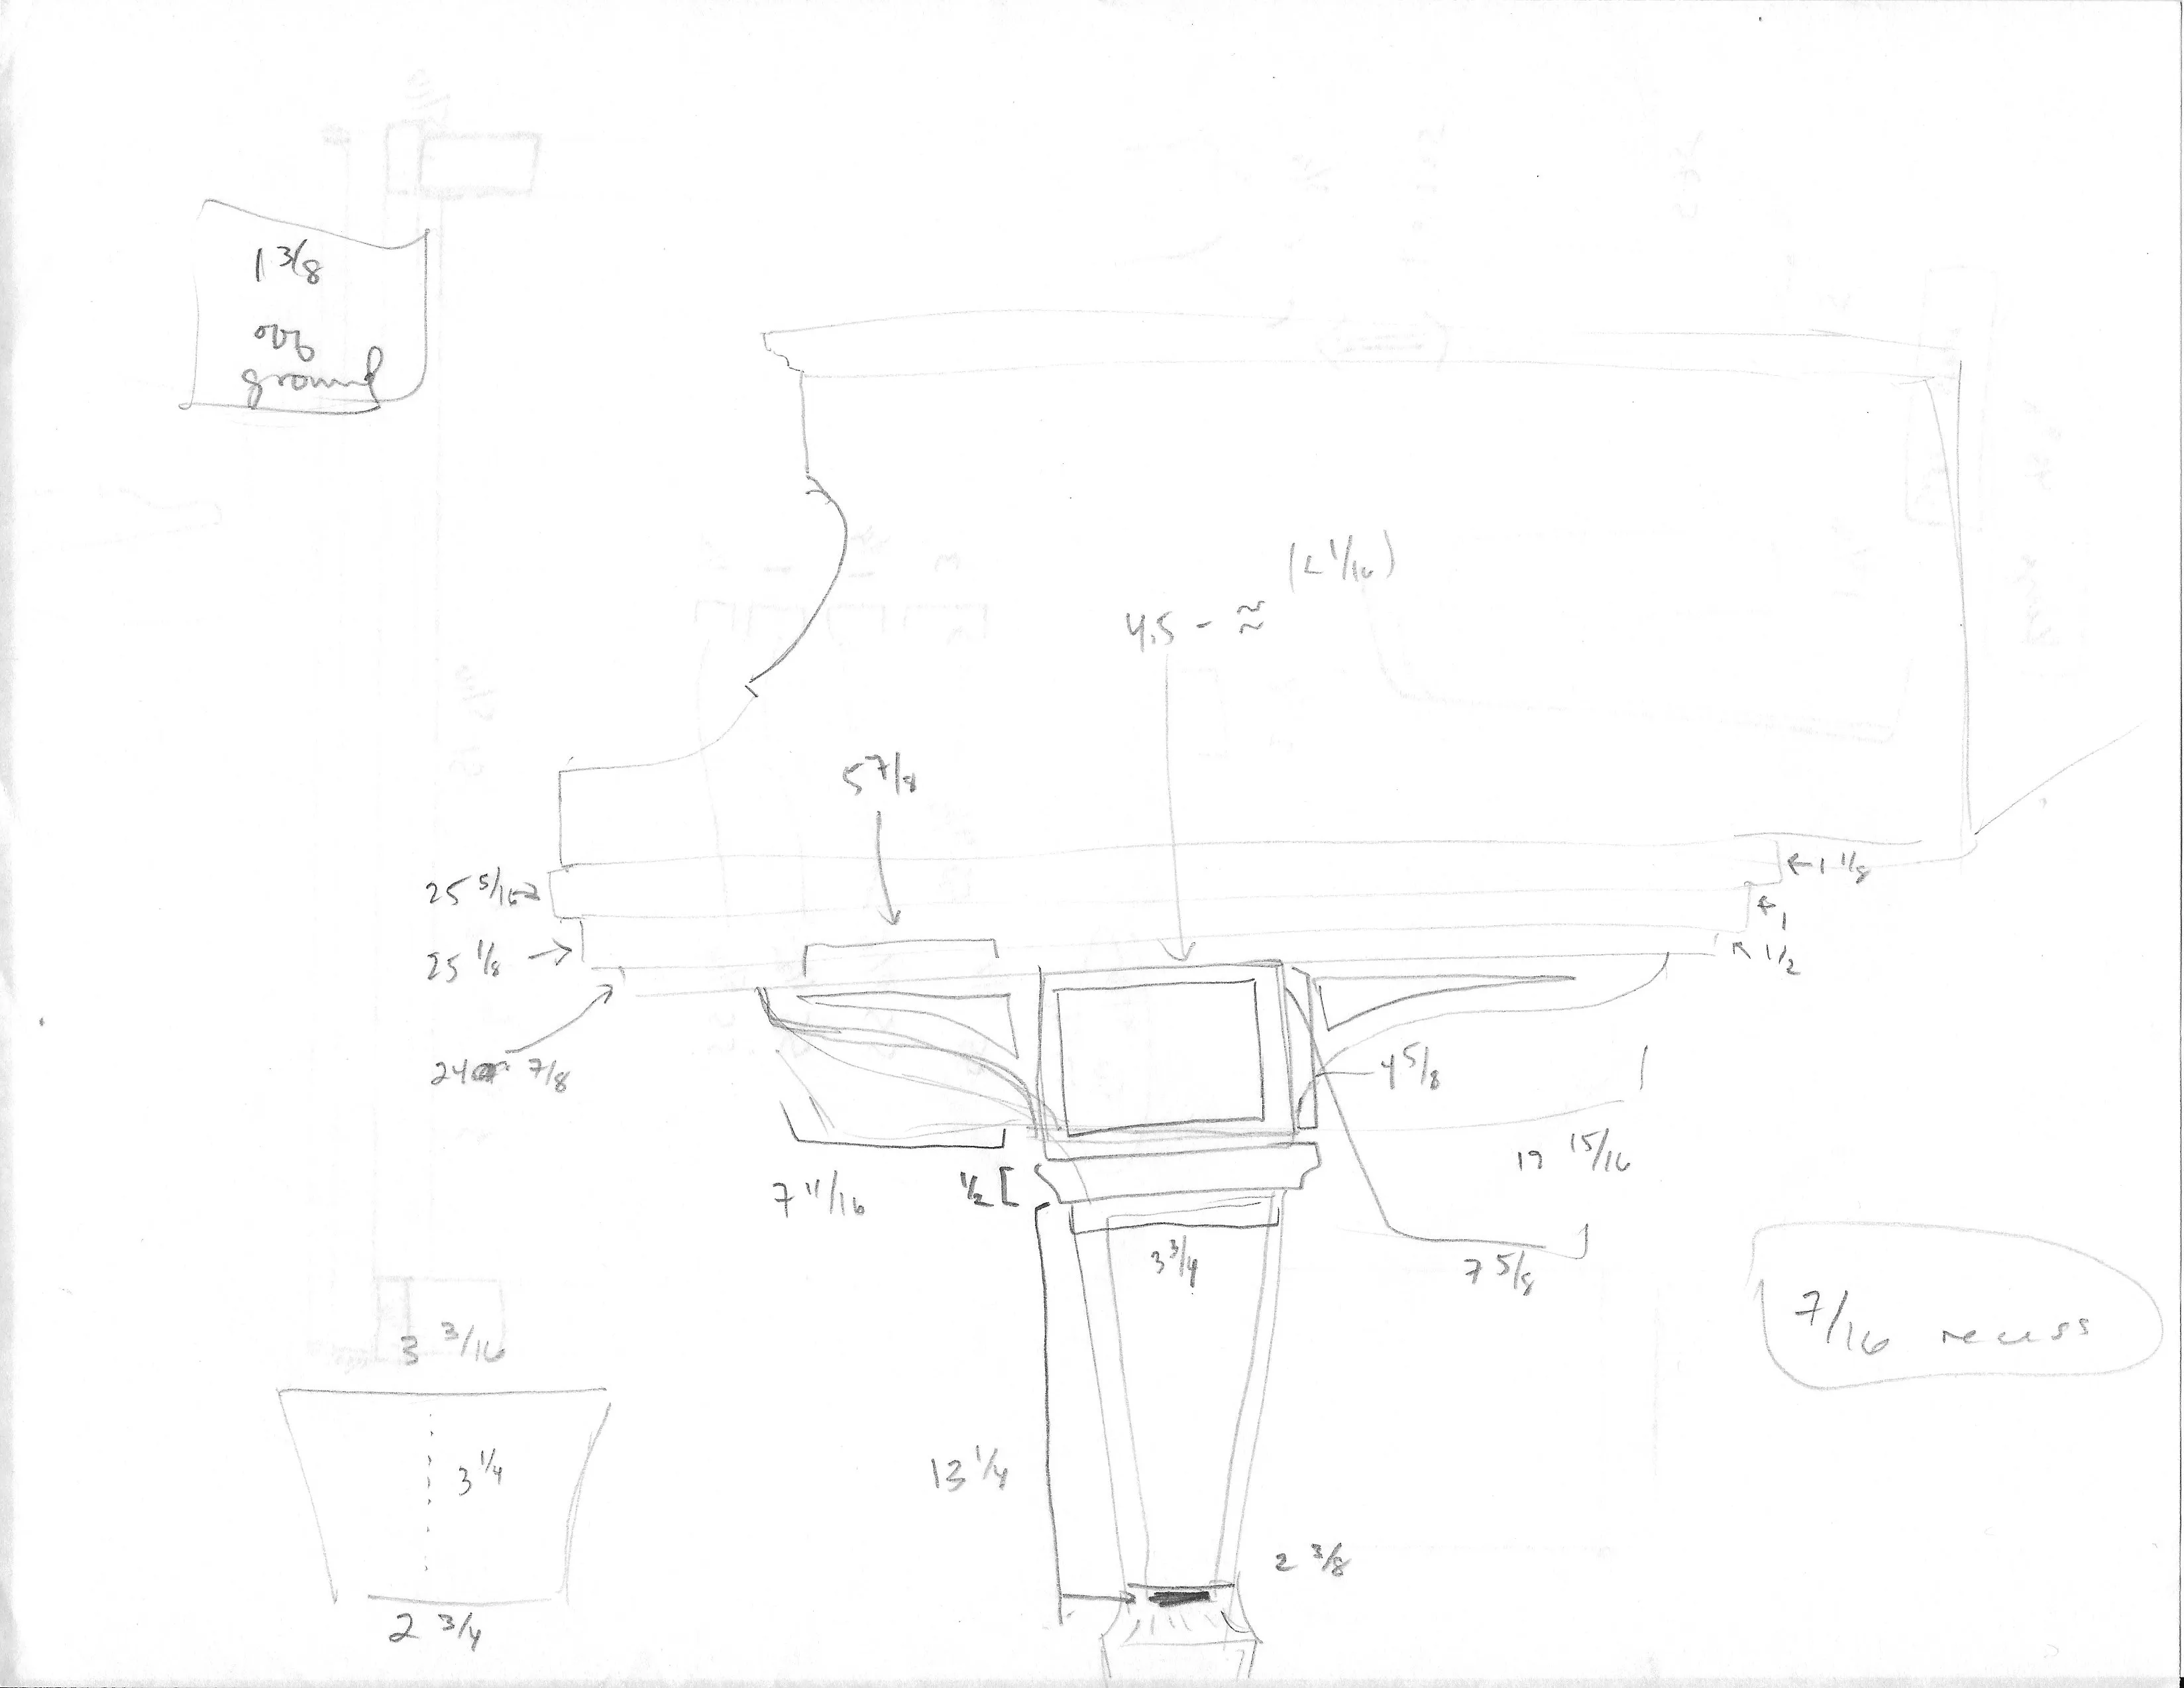 1 3/8
off
ground
(L 1/16)
4.5 - ≈
5 7/8
25 5/16 →
← 1 1/8
← 1
25 1/8 →
↖ 1/2
24 7/8
4 5/8
19 15/16
7 11/16
1/2 [
3 3/4
7 5/8
7/16 recess
3 3/16
13 1/4
3 1/4
2 3/8
2 3/4